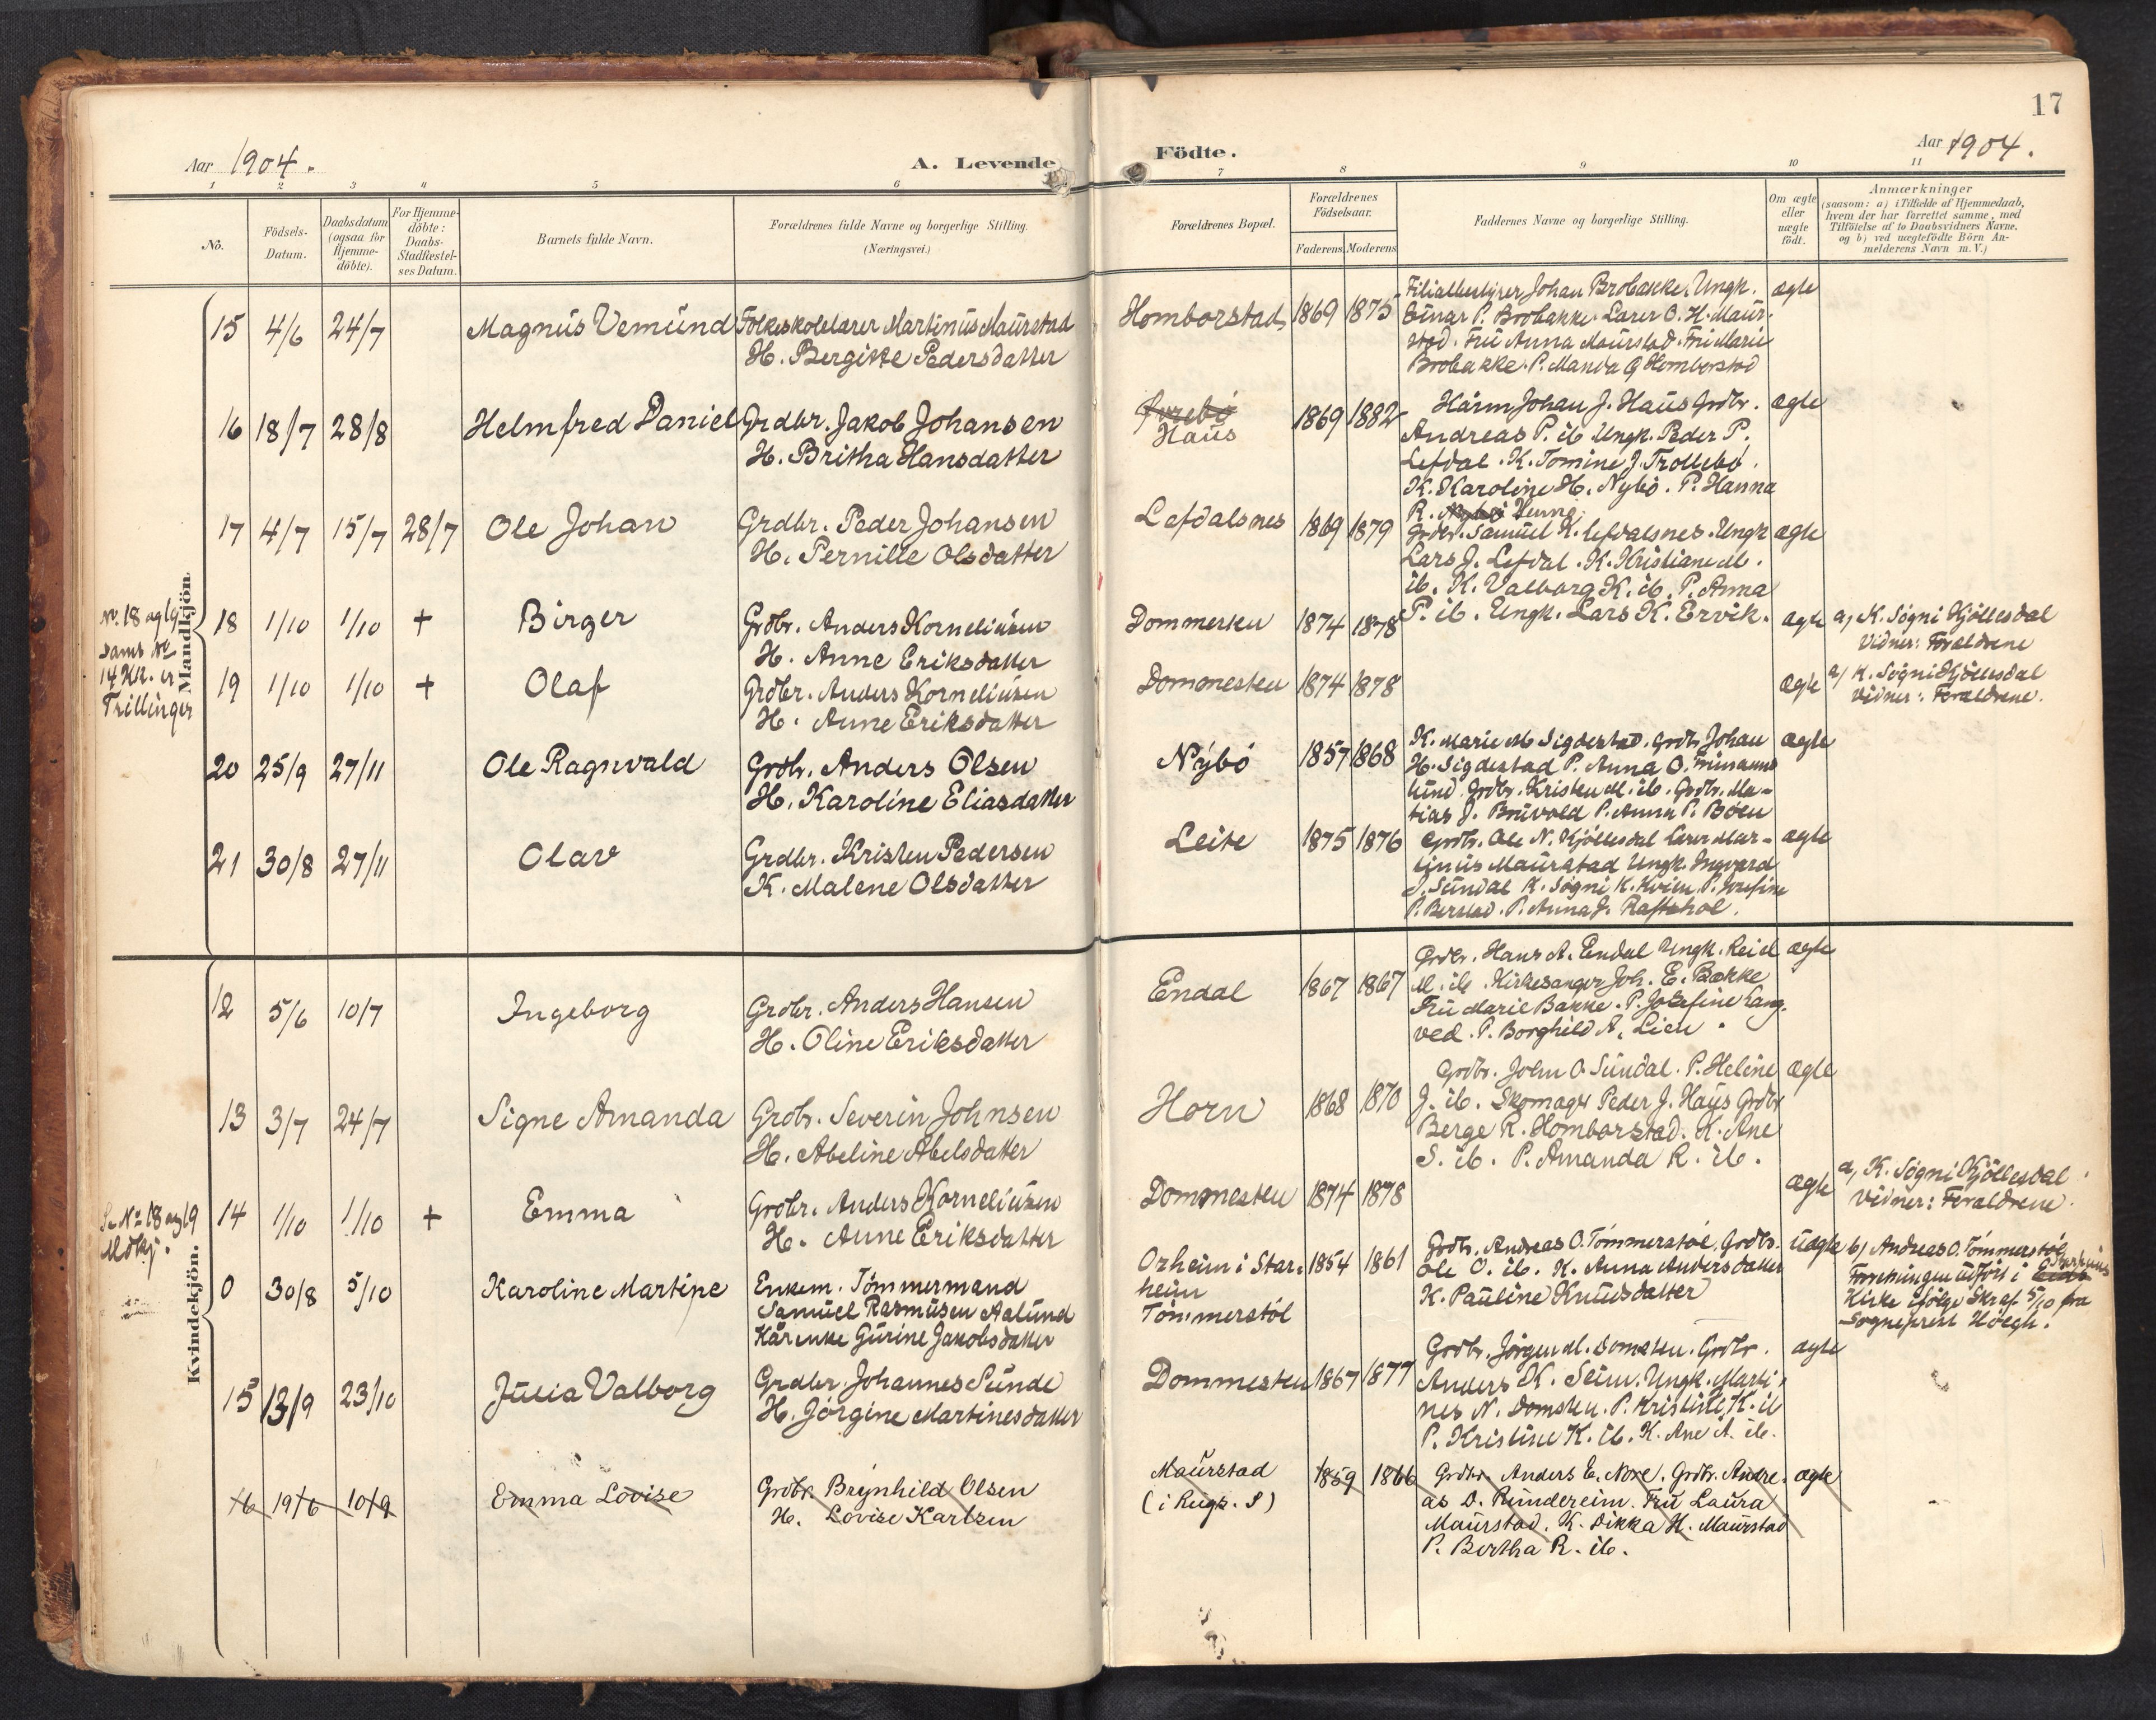 17
Aar 1904.
A. Levende
Födte.
Aar 1904.
1 2 3 4 5 6 7 8 9 10 11
No.
Födsels-
Datum.
Daabsdatum
(ogsaa for
Hjemme-
döbte).
For Hjemme-
döbte:
Daabs-
Stadfæstel-
ses Datum.
Barnets fulde Navn.
Forældrenes fulde Navne og borgerlige Stilling.
(Næringsvei.)
Forældrenes Bopæl.
Forældrenes
Födselsaar.
Faderens Moderens
Faddernes Navne og borgerlige Stilling.
Om ægte
eller
uægte
födt.
Anmærkninger
(saasom: a) i Tilfælde af Hjemmedaab,
hvem der har forrettet samme, med
Tilföielse af to Daabsvidners Navne,
og b) ved uægtefödte Börn An-
melderens Navn m. V.)
Mandkjön.
15 4/6 24/7 Magnus Vemund
Folkeskolelærer Martinus Maurstad
H. Bergitte Pedersdatter
Homborstad 1869 1875
Filialbestyrer Johan Brobakke. Ungk.
Einar P. Brobakke. Lærer O. H. Maur-
stad. Fru Anna Maurstad. Fru Marie
Brobakke. P. Manda Q Homborstad
ægte
16 18/7 28/8 Helmfred Daniel
Grdbr. Jakob Johansen
H. Britha Hansdatter
Haus 1869 1882
Haarm Johan J. Haus Grdbr.
Andreas P. ib Ungk. Peder P.
Lefdal. K. Tomine J. Trollebö.
K. Karoline H. Nybö. P. Hanna
R. Nybö Henne
ægte
17 4/7 15/7 28/7 Ole Johan
Grdbr. Peder Johansen
H. Pernille Olsdatter
Lefdalsnes 1869 1879
Grdbr. Samuel K. Lefdalsnes. Ungk
Lars J. Lefdal. K. Kristiane M.
ib. K. Valborg K. ib. P. Anna
P. ib. Ungk. Lars K. Ervik.
ægte
No. 18 og 19
samt No
14 Kk. er
Trillinger
18 1/10 1/10 + Birger
Grdbr. Anders Korneliusen
H. Anne Eriksdatter
Dommesten 1874 1878
ægte
a, K. Søgni Kjöllesdal
Vidner: Forældrene
19 1/10 1/10 + Olaf
Grdbr. Anders Korneliusen
H. Anne Eriksdatter
Dommesten 1874 1878
ægte
a, K. Søgni Kjöllesdal
Vidner: Forældrene.
20 25/9 27/11 Ole Ragnvald
Grdbr. Anders Olsen
H. Karoline Eliasdatter
Nybö 1857 1868
K. Marie M Sigdestad. Grdbr Johan
H. Sigdestad P. Anna O. Frimanns
lund. Grdbr. Kristen M. ib. Grdbr. Ma-
tias J. Bruvold P. Anna P. Böen
ægte
21 30/8 27/11 Olav
Grdbr. Kristen Pedersen
K. Malene Olsdatter
Leite 1875 1876
Grdbr. Ole N. Kjöllesdal Lærer Mar-
tinus Maurstad Ungk. Ingvard
J. Sundal K. Søgni K. Hvien. P. Josefine
P. Berstad. P. Anna J. Raftshol.
ægte
Kvindekjön.
12 5/6 10/7 Ingeborg
Grdbr. Anders Hansen
H. Oline Eriksdatter
Endal 1867 1867
Grdbr. Hans A. Endal Ungk. Reid
M. ib. Kirkesanger Joh. E. Bakke
Fru Marie Bakke. P. Josefine Lang-
ved. P. Borghild A. Lien.
ægte
13 3/7 24/7 Signe Amanda
Grdbr. Severin Johnsen
H. Abeline Abelsdatter
Horn 1868 1870
Grdbr. John O. Sundal. P. Heline
J. ib. Skomager Peder J. Haus Grdbr
Berge R. Homborstad. K. Ane
S. ib. P. Amanda R. ib.
ægte
Se No 18 og 19
Mdkj.
14 1/10 1/10 + Emma
Grdbr. Anders Korneliusen
H. Anne Eriksdatter
Dommesten 1874 1878
ægte
a, K. Søgni Kjöllesdal
Vidner: Forældrene.
0 30/8 5/10 Karoline Martine
Enkem. Tömmermand
Samuel Rasmusen Aalund
Kårenke Gurine Jakobsdatter
Orheim i Star-
heim
Tömmerstöl
1854 1861
Grdbr. Andreas O. Tömmerstöl. Grdbr.
Ole O. ib. K. Anna Andersdatter
K. Pauline Knudsdatter
uægte
b, Andreas O. Tömmerstöl
Forretningen udfört i Starheims
Kirke ifölge Skr. af 5/10 fra
Sogneprest Höegh.
15 13/9 23/10 Julia Valborg
Grdbr. Johannes Sunde
H. Jörgine Martinesdatter
Dommesten 1867 1877
Grdbr. Jörgen M. Domsten. Grdbr.
Anders K. Seim. Ungk. Marti-
nes N. Domsten. P. Kristine K. ib
P. Kristine K. ib. K. Ane A. ib.
ægte
16 19/6 10/9 Emma Lovise
Grdbr. Brynhild Olsen
H. Lovise Karlsen
Maurstad
(i Rugs. S)
1859 1866
Grdbr. Anders E. Nore. Grdbr. Andre-
as D. Rundereim. Fru Laura
Maurstad. K. Dikka H. Maurstad
P. Bertha R. ib.
ægte